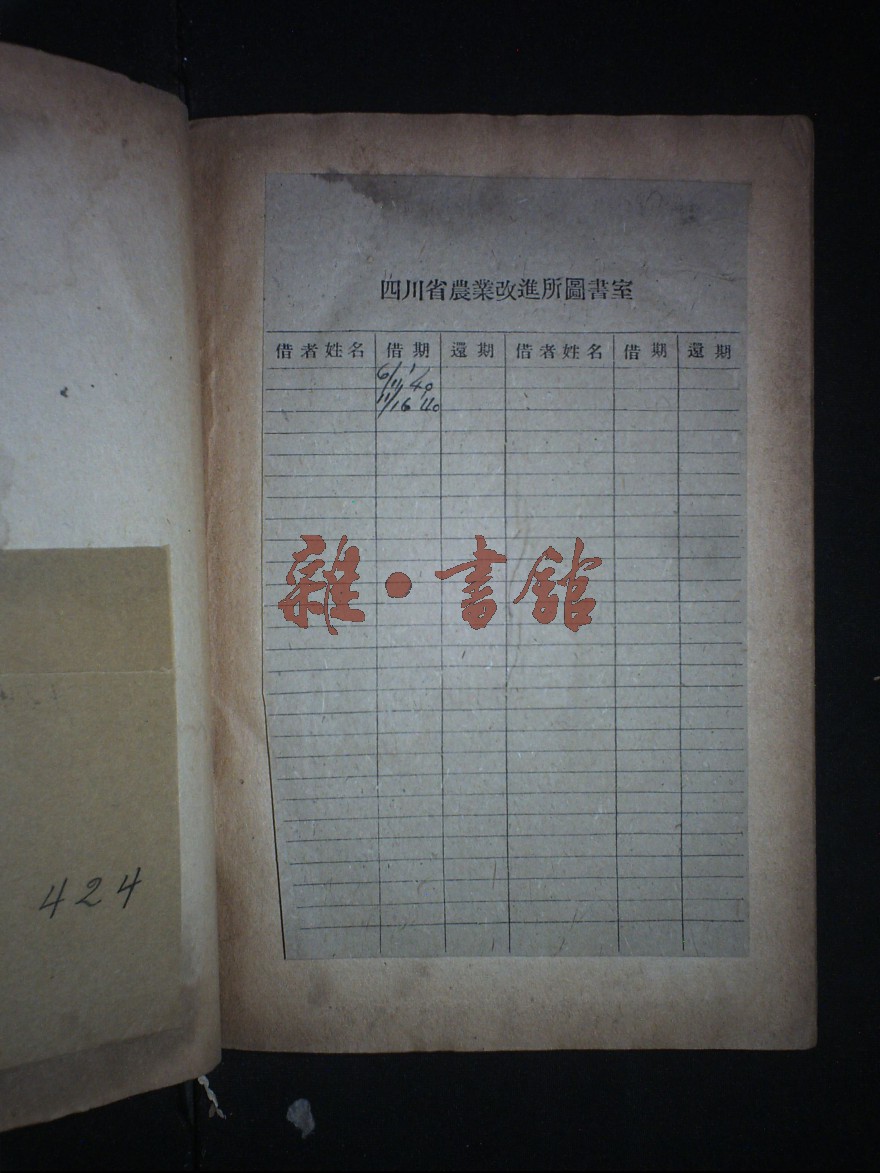 四川省農業改進所圖書室
借者姓名 借期 還期 借者姓名 借期 還期
11/16 '40
雜·書館
424